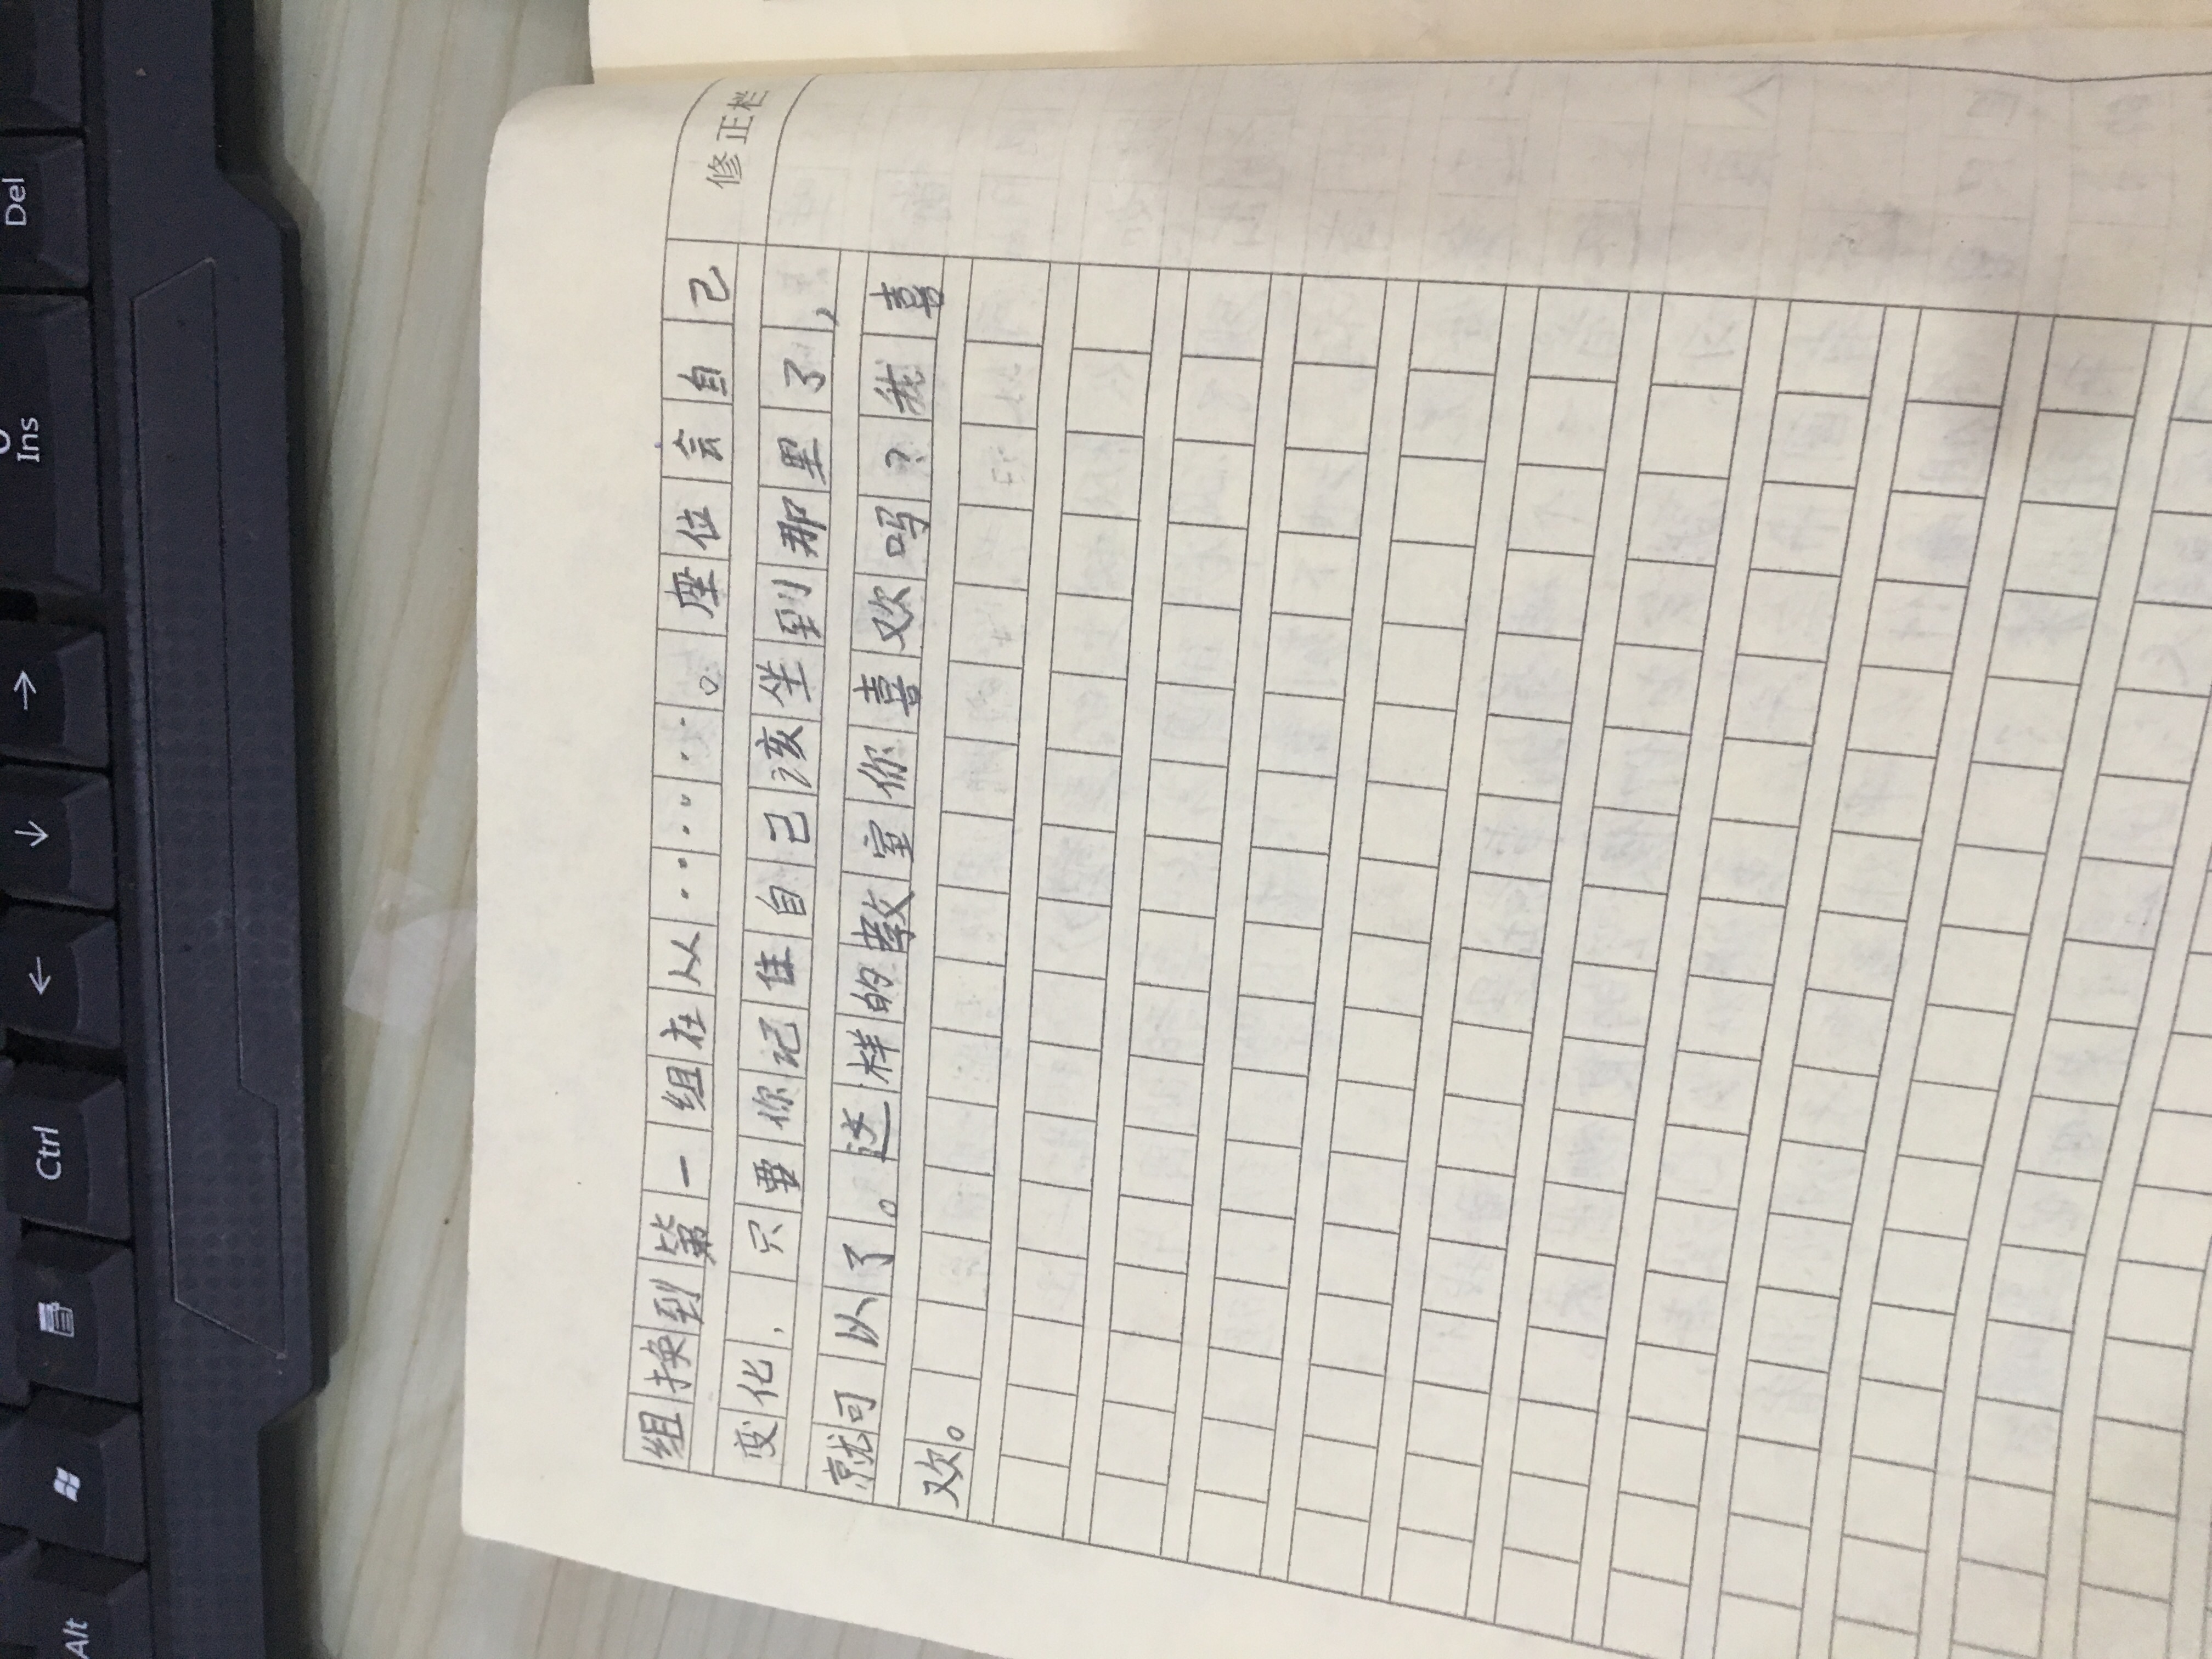 修正栏
组换到第一组在从……。座位会自己
变化，只要你记住自己该坐到那里了，
就可以了。这样的教室你喜欢吗？我喜
欢。
Del
Ins
→
↓
←
Ctrl
Alt